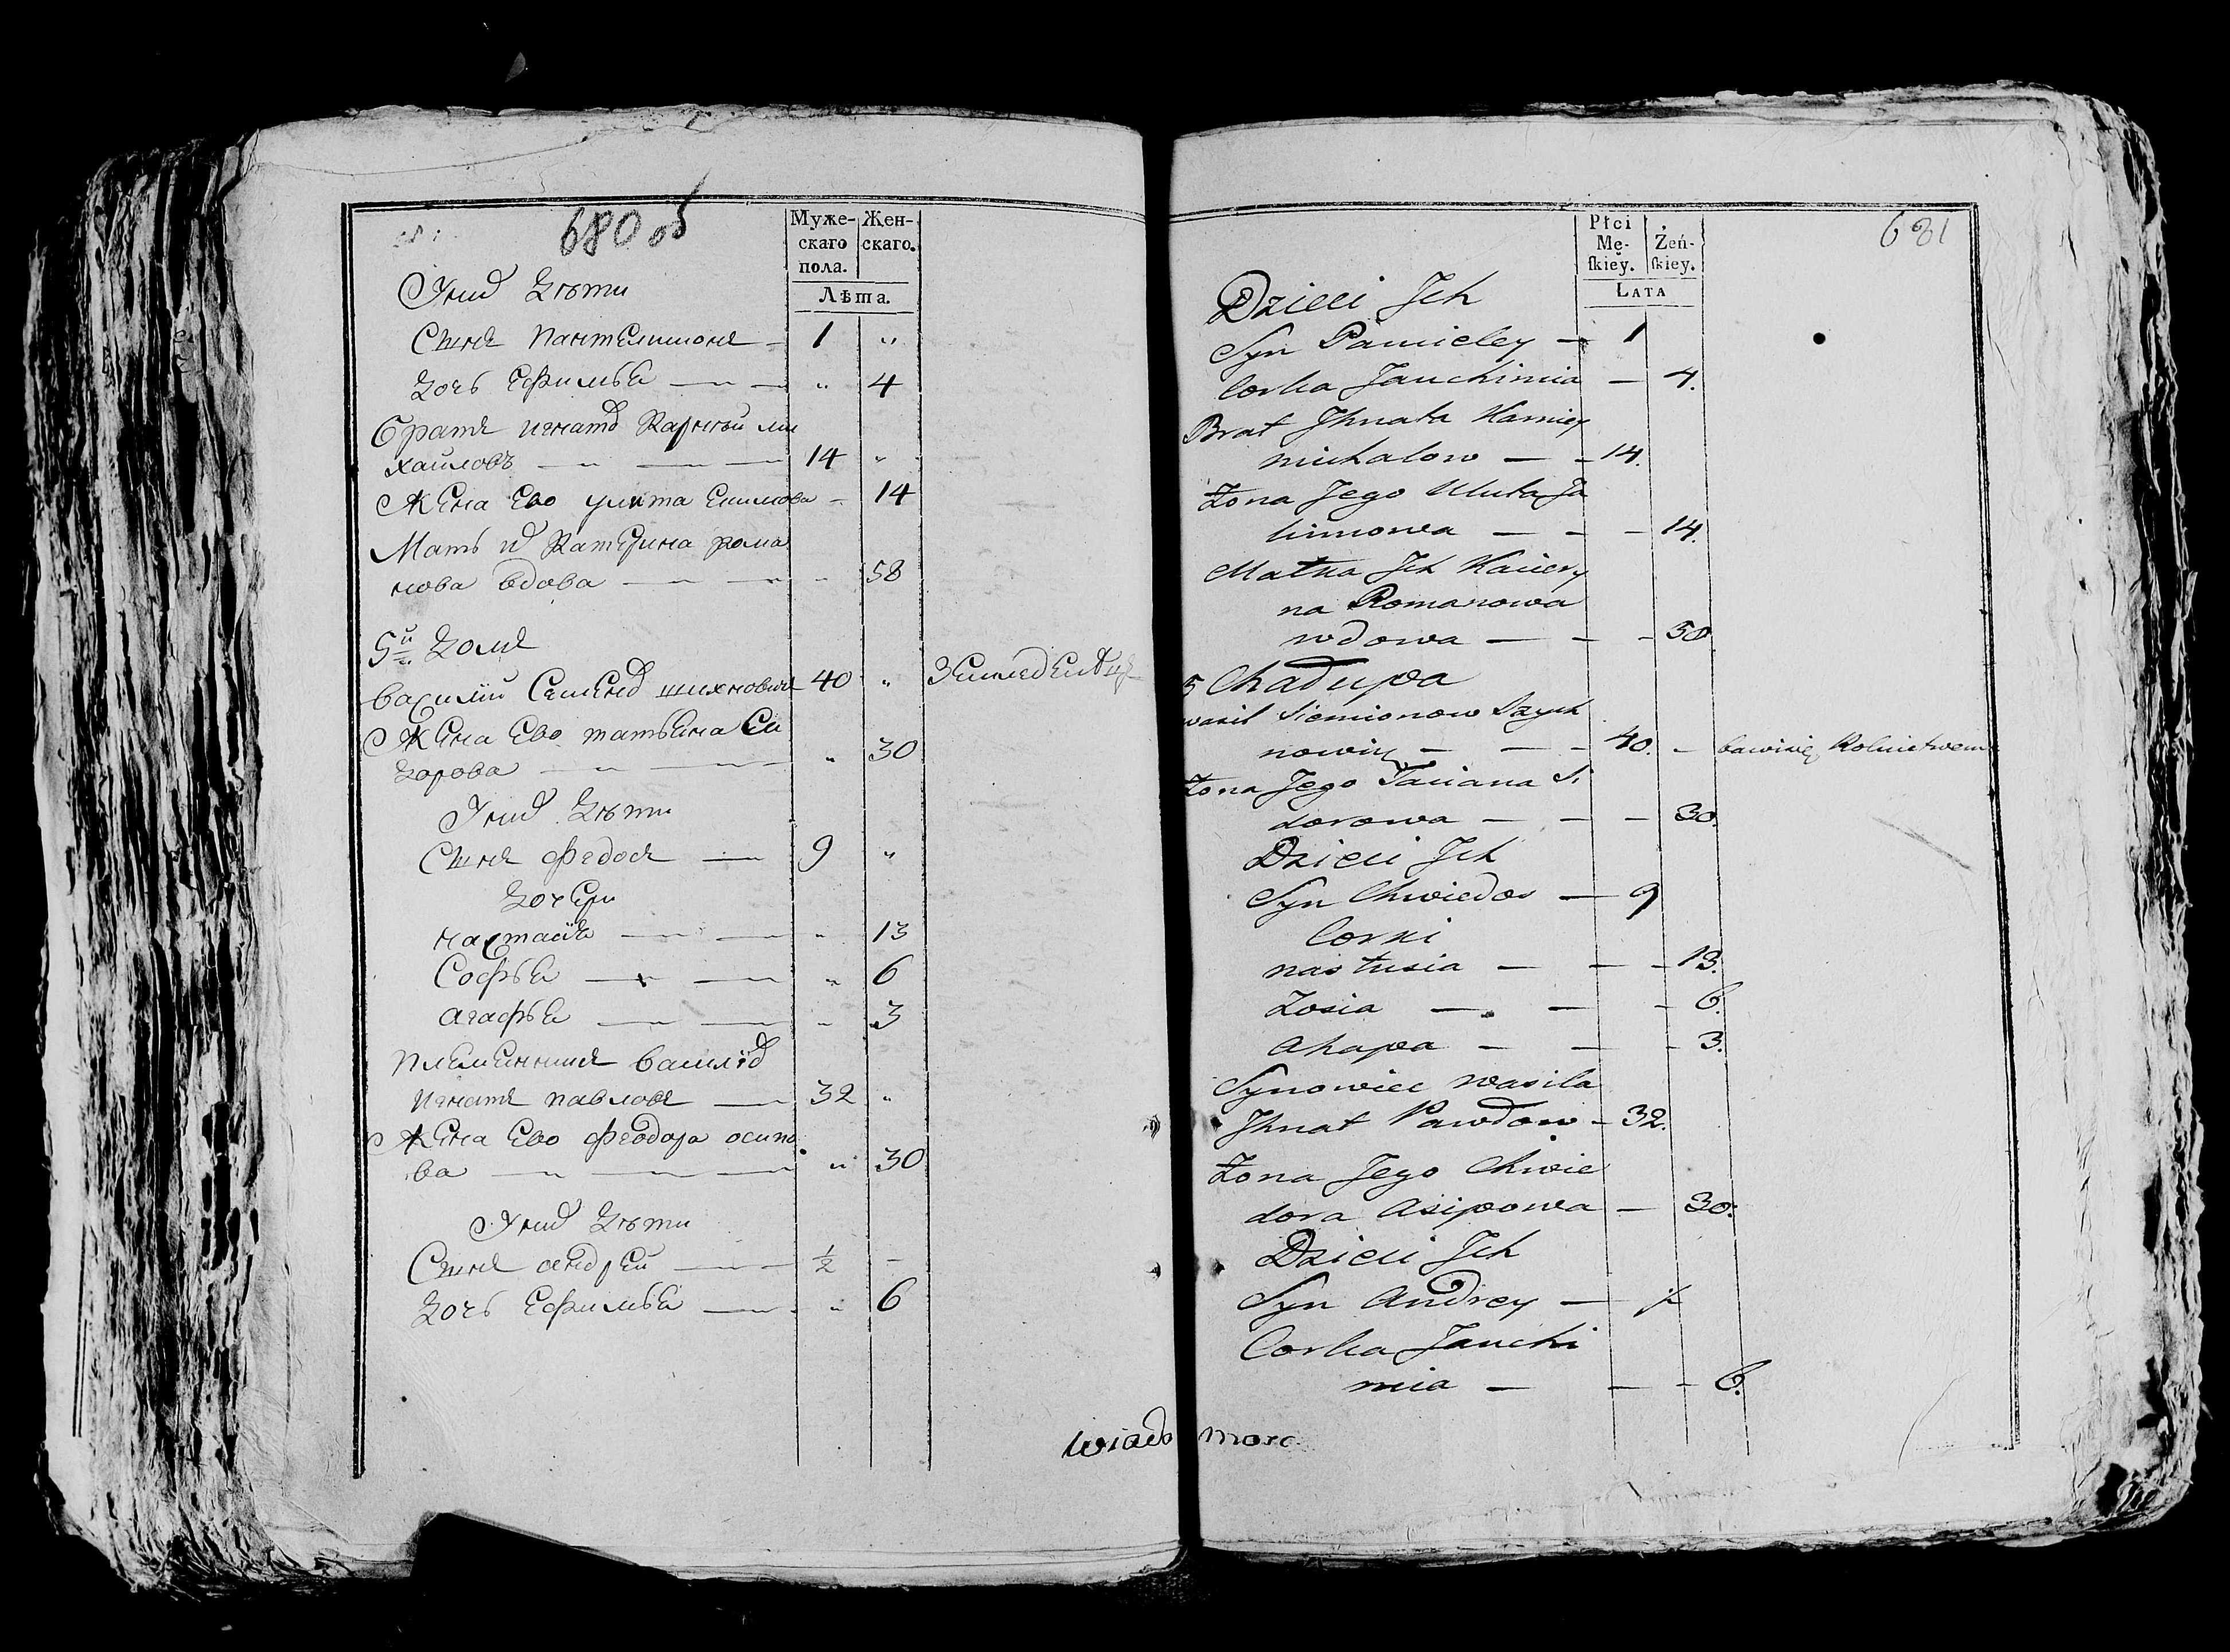 680 об
Муже-
скаго
пола.
Жен-
скаго.
Лѣта.
У нихъ Дѣти
Сынъ Пантелимонъ — 1 "
Дочь Ефимья — " 4
братъ игнатъ Карней ми
хайловъ — 14 "
Жена Ево улита Екимова — 14
Мать ихъ Катерина рома
нова вдова — " 58
5й Домъ
Василий Семеновъ шихновичъ 40 "
Жена Ево татьяна Си
дорова — " 30
У нихъ Дѣти
Сынъ Федосъ — 9 "
Дочери
настасія — " 13
Софья — " 6
агафья — " 3
племянникъ Василія
Игнатъ павловъ — 32 "
Жена Ево Феодора осипо
ва — " 30
У нихъ Дѣти
Сынъ андрей — 1/2 —
Дочь Ефимья — " 6
wiado
681
Płci
Mę-
skiey.
Żeń-
skiey.
LATA
Dzieci Jch
Syn Pamieley — 1
Corka Jauchimia — 4.
Brat Jhnata Karniey
michalow — 14.
Żona Jego Uluta Ja
kimowa — 14.
Matka Jch Kaciery
na Romanowa
wdowa — 58
5 Chałupa
wasil Siemionow Szych
nowicz — 40. — bawi się Rolnictwem
Żona Jego Taciana Si
dorowa — 30.
Dzieci Jch
Syn Chwiedos — 9
Corki
nastusia — 13.
Zosia — 6.
Ahapa — 3.
Synowiec wasila
Jhnat Pawłow — 32.
Żona Jego Chwie
dora Asipowa — 30.
Dzieci Jch
Syn Andrey — 1/2
Corka Jauchi
mia — 6.